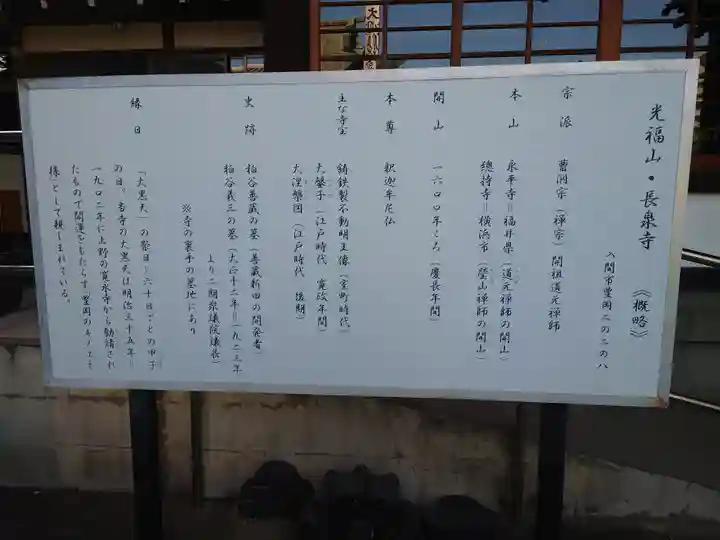 光福山・長泉寺 《概略》
入間市豊岡二の二の八
宗派 曹洞宗(禅宗)開祖道元禅師
本山 永平寺=福井県(道元禅師の開山)
總持寺=横浜市(瑩山禅師の開山)
開山 一六〇〇年ころ(慶長年間)
本尊 釈迦牟尼仏
主な寺宝 鋳鉄製不動明王像(室町時代)
大磬子(江戸時代 寛政年間)
大涅槃図(江戸時代 後期)
史跡 粕谷善蔵の墓(善蔵新田の開発者)
粕谷義三の墓(大正十二年=一九二三年
より二期衆議院議長)
※寺の裏手の墓地にあり
縁日 「大黒天」の祭日=六十日ごとの甲子
の日。当寺の大黒天は明治三十五年=
一九〇二年に上野の寛永寺から勧請され
たもので開運をもたらす"豊岡のえてえそ
様"として親しまれている。